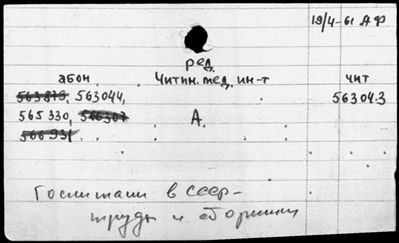 19/4-61 АФ
ред.
абон. Читин. мед. ин-т чит
563879, 563044, 563043
565330, 566307 А.
566931
Госпитали в СССР-
труды и сборники